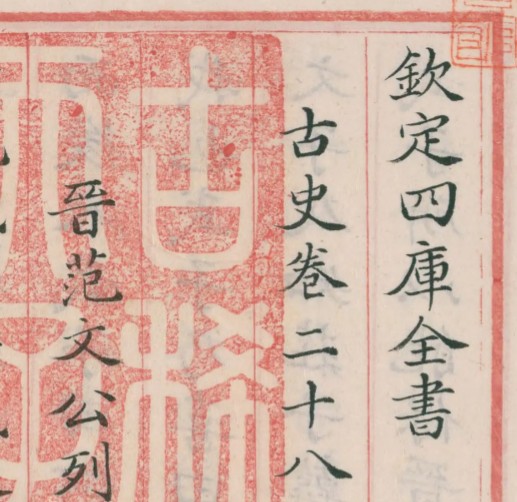 欽定四庫全書
古史卷二十八
晉范文公列
古稀